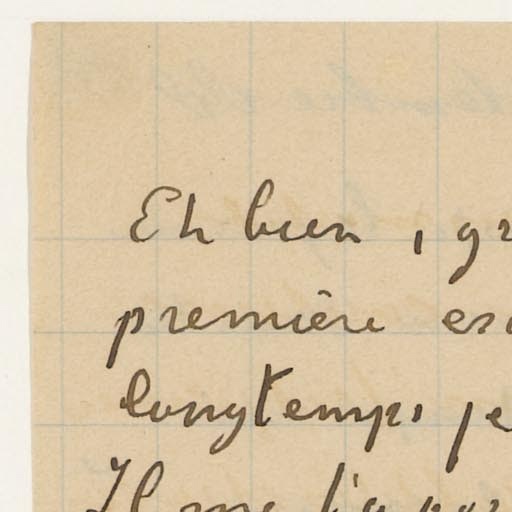 Eh bien, gr
première es
longtemps je
Il me l'a